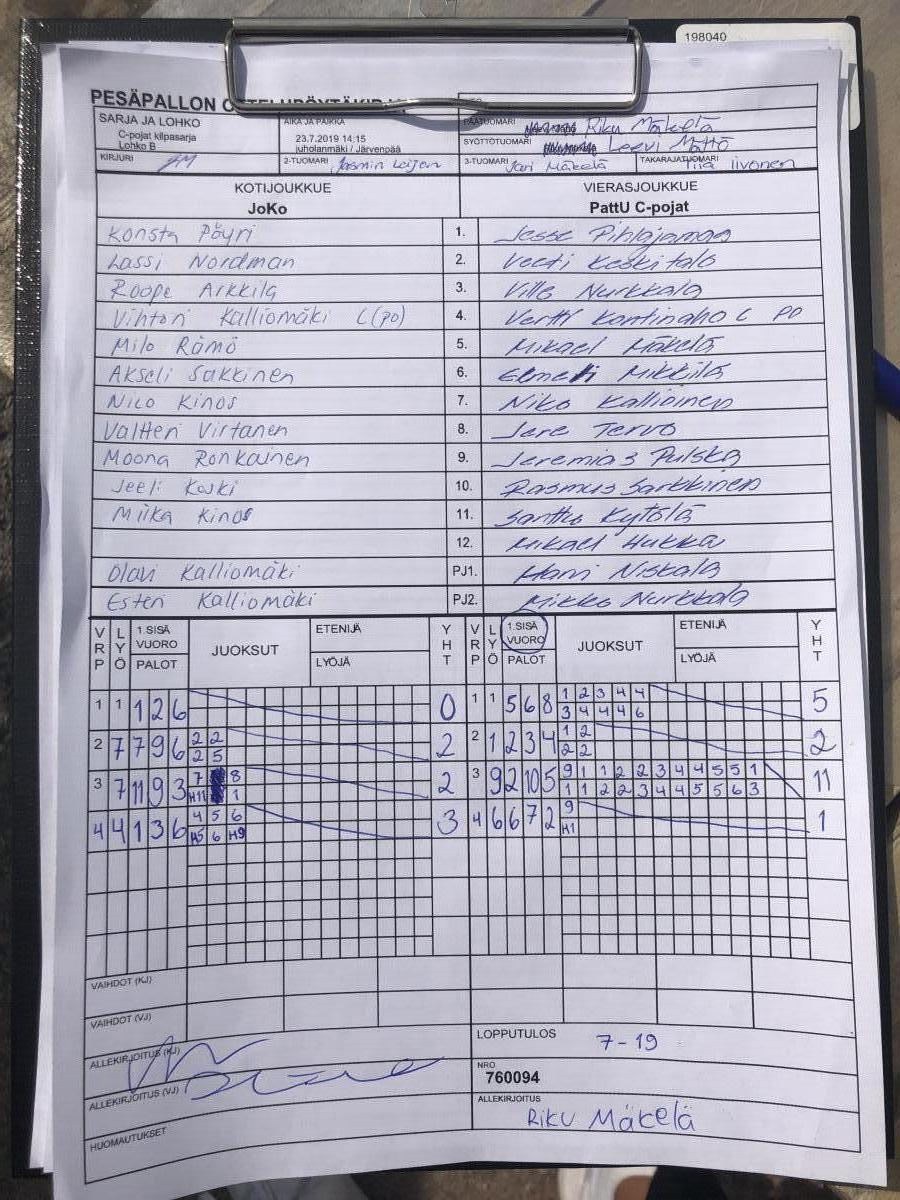 198040
PESÄPALLON OTTELUPÖYTÄKIRJA
SARJA JA LOHKO
C-pojat kilpasarja
Lohko B
AIKA JA PAIKKA
23.7.2019 14:15
juholanmäki / Järvenpää
PÄÄTUOMARI Riku Mäkelä
SYÖTTÖTUOMARI Leevi Mättö
KIRJURI JM
2-TUOMARI Jasmin
3-TUOMARI Jari Mäkelä
TAKARAJATUOMARI Tiia Iivonen
KOTIJOUKKUE VIERASJOUKKUE
JoKo PattU C-pojat
Konsta Pöyri 1. Jesse Pihlajamaa
Lassi Nordman 2. Veeti Keskitalo
Roope Arkkila 3. Ville Nurkkala
Vihtori Kalliomäki C(po) 4. Vertti Kontinaho C PO
Milo Rämö 5. Mikael Mäkelä
Akseli Sakkinen 6. Elmeri Mikkilä
Nico Kinos 7. Niko Kallioinen
Valtteri Virtanen 8. Jere Tervo
Moona Ronkainen 9. Jeremias Pulska
Jeeli Koski 10. Rasmus Sarkkinen
Milka Kinos 11. Santtu Kytölä
12. Mikael Hukka
Olavi Kalliomäki PJ1. Harri Niskala
Esteri Kalliomäki PJ2. Mikko Nurkkala
VRP LYÖ 1.SISÄ VUORO PALOT JUOKSUT ETENIJÄ LYÖJÄ YHT VRP LYÖ 1.SISÄ VUORO PALOT JUOKSUT ETENIJÄ LYÖJÄ YHT
1 1 1 2 6 0 1 1 5 6 8 1 2 3 4 4 5
3 4 4 4 6
2 7 7 9 6 2 2 2 2 1 2 3 4 1 2 2
2 5 2 2
3 7 11 9 3 7 8 2 3 9 2 10 5 9 1 1 2 2 3 4 4 5 5 1 11
H11 1 1 1 2 2 3 4 4 5 5 6 3
4 4 1 3 6 4 5 6 3 4 6 6 7 2 9 1
H5 6 H9 H1
VAIHDOT (KJ)
VAIHDOT (VJ)
ALLEKIRJOITUS (KJ)
LOPPUTULOS 7-19
ALLEKIRJOITUS (VJ)
NRO
760094
HUOMAUTUKSET
ALLEKIRJOITUS
RIKU Mäkelä